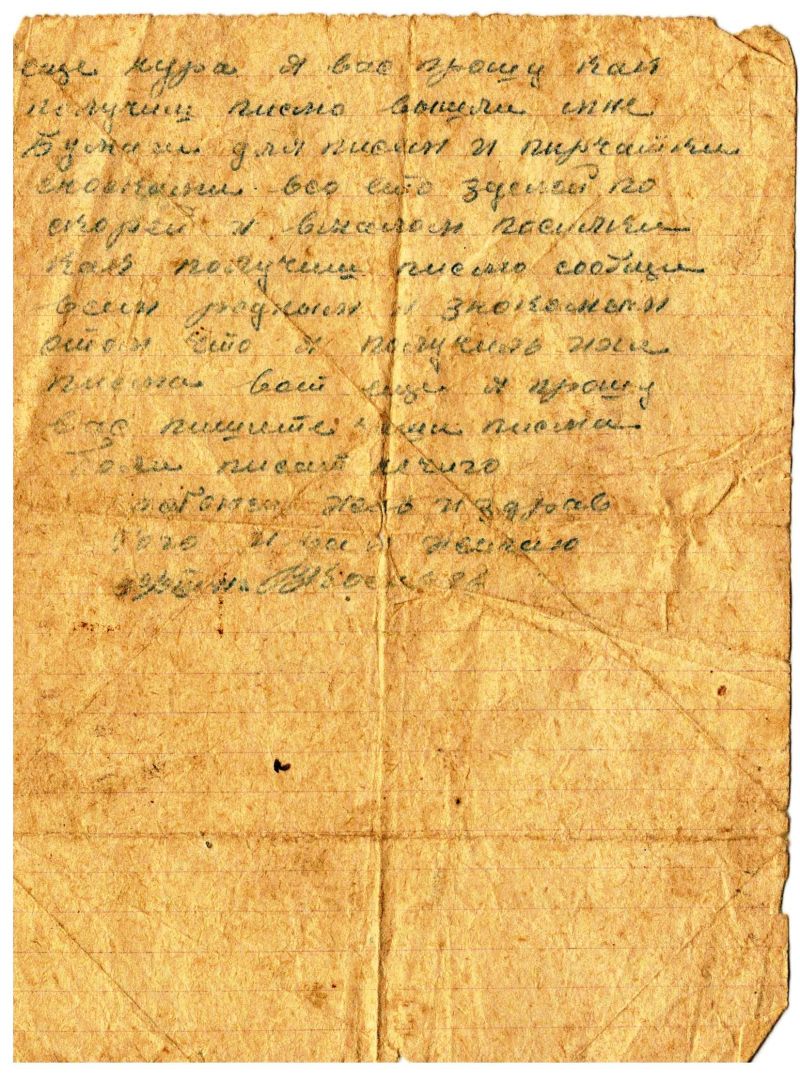 еще нура я вас прошу как
получиш писмо вышли мне
Бумаги для писем и пирчатки
сносками все ето зделай по
скорей и вмалом посилки
как получиш писмо сообщи
всем родным и знокомым
отом что я получиль
писма вот еще я прошу
вас пишите писма
Боли писат нечиго
жив и здрав
того и вам желаю